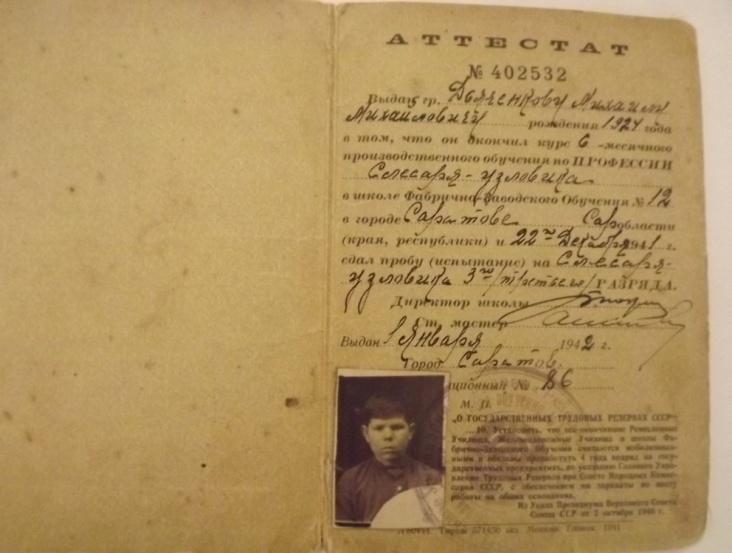 АТТЕСТАТ
№ 402532
Выдан гр. Дьяченкову Михаилу
Михайловичу рождения 1924 года
в том, что он окончил курс 6-месячного
производственного обучения по ПРОФЕССИИ
Слесаря-узловика
в школе Фабрично-Заводского Обучения № 12
в городе Саратове Сар области
(края, республики) и 22го Декабря 1941 г.
сдал пробу (испытание) на Слесаря-
узловика 3го /третьего/ РАЗРЯДА.
Директор школы
Ст. мастер
Выдан 1 Января 1942 г.
Город Саратов.
ционный № 86
М. П.
"О ГОСУДАРСТВЕННЫХ ТРУДОВЫХ РЕЗЕРВАХ СССР"
10. Установить, что все окончившие Ремесленные
Училища, Железнодорожные Училища и школы Фаб-
рично-Заводского Обучения считаются мобилизован-
ными и обязаны проработать 4 года подряд на госу-
дарственных предприятиях, по указанию Главного Управ-
ления Трудовых Резервов при Совете Народных Комис-
саров СССР, с обеспечением им зарплаты по месту
работы на общих основаниях.
Из Указа Президиума Верховного Совета
Союза ССР от 2 октября 1940 г.
Москва 1941